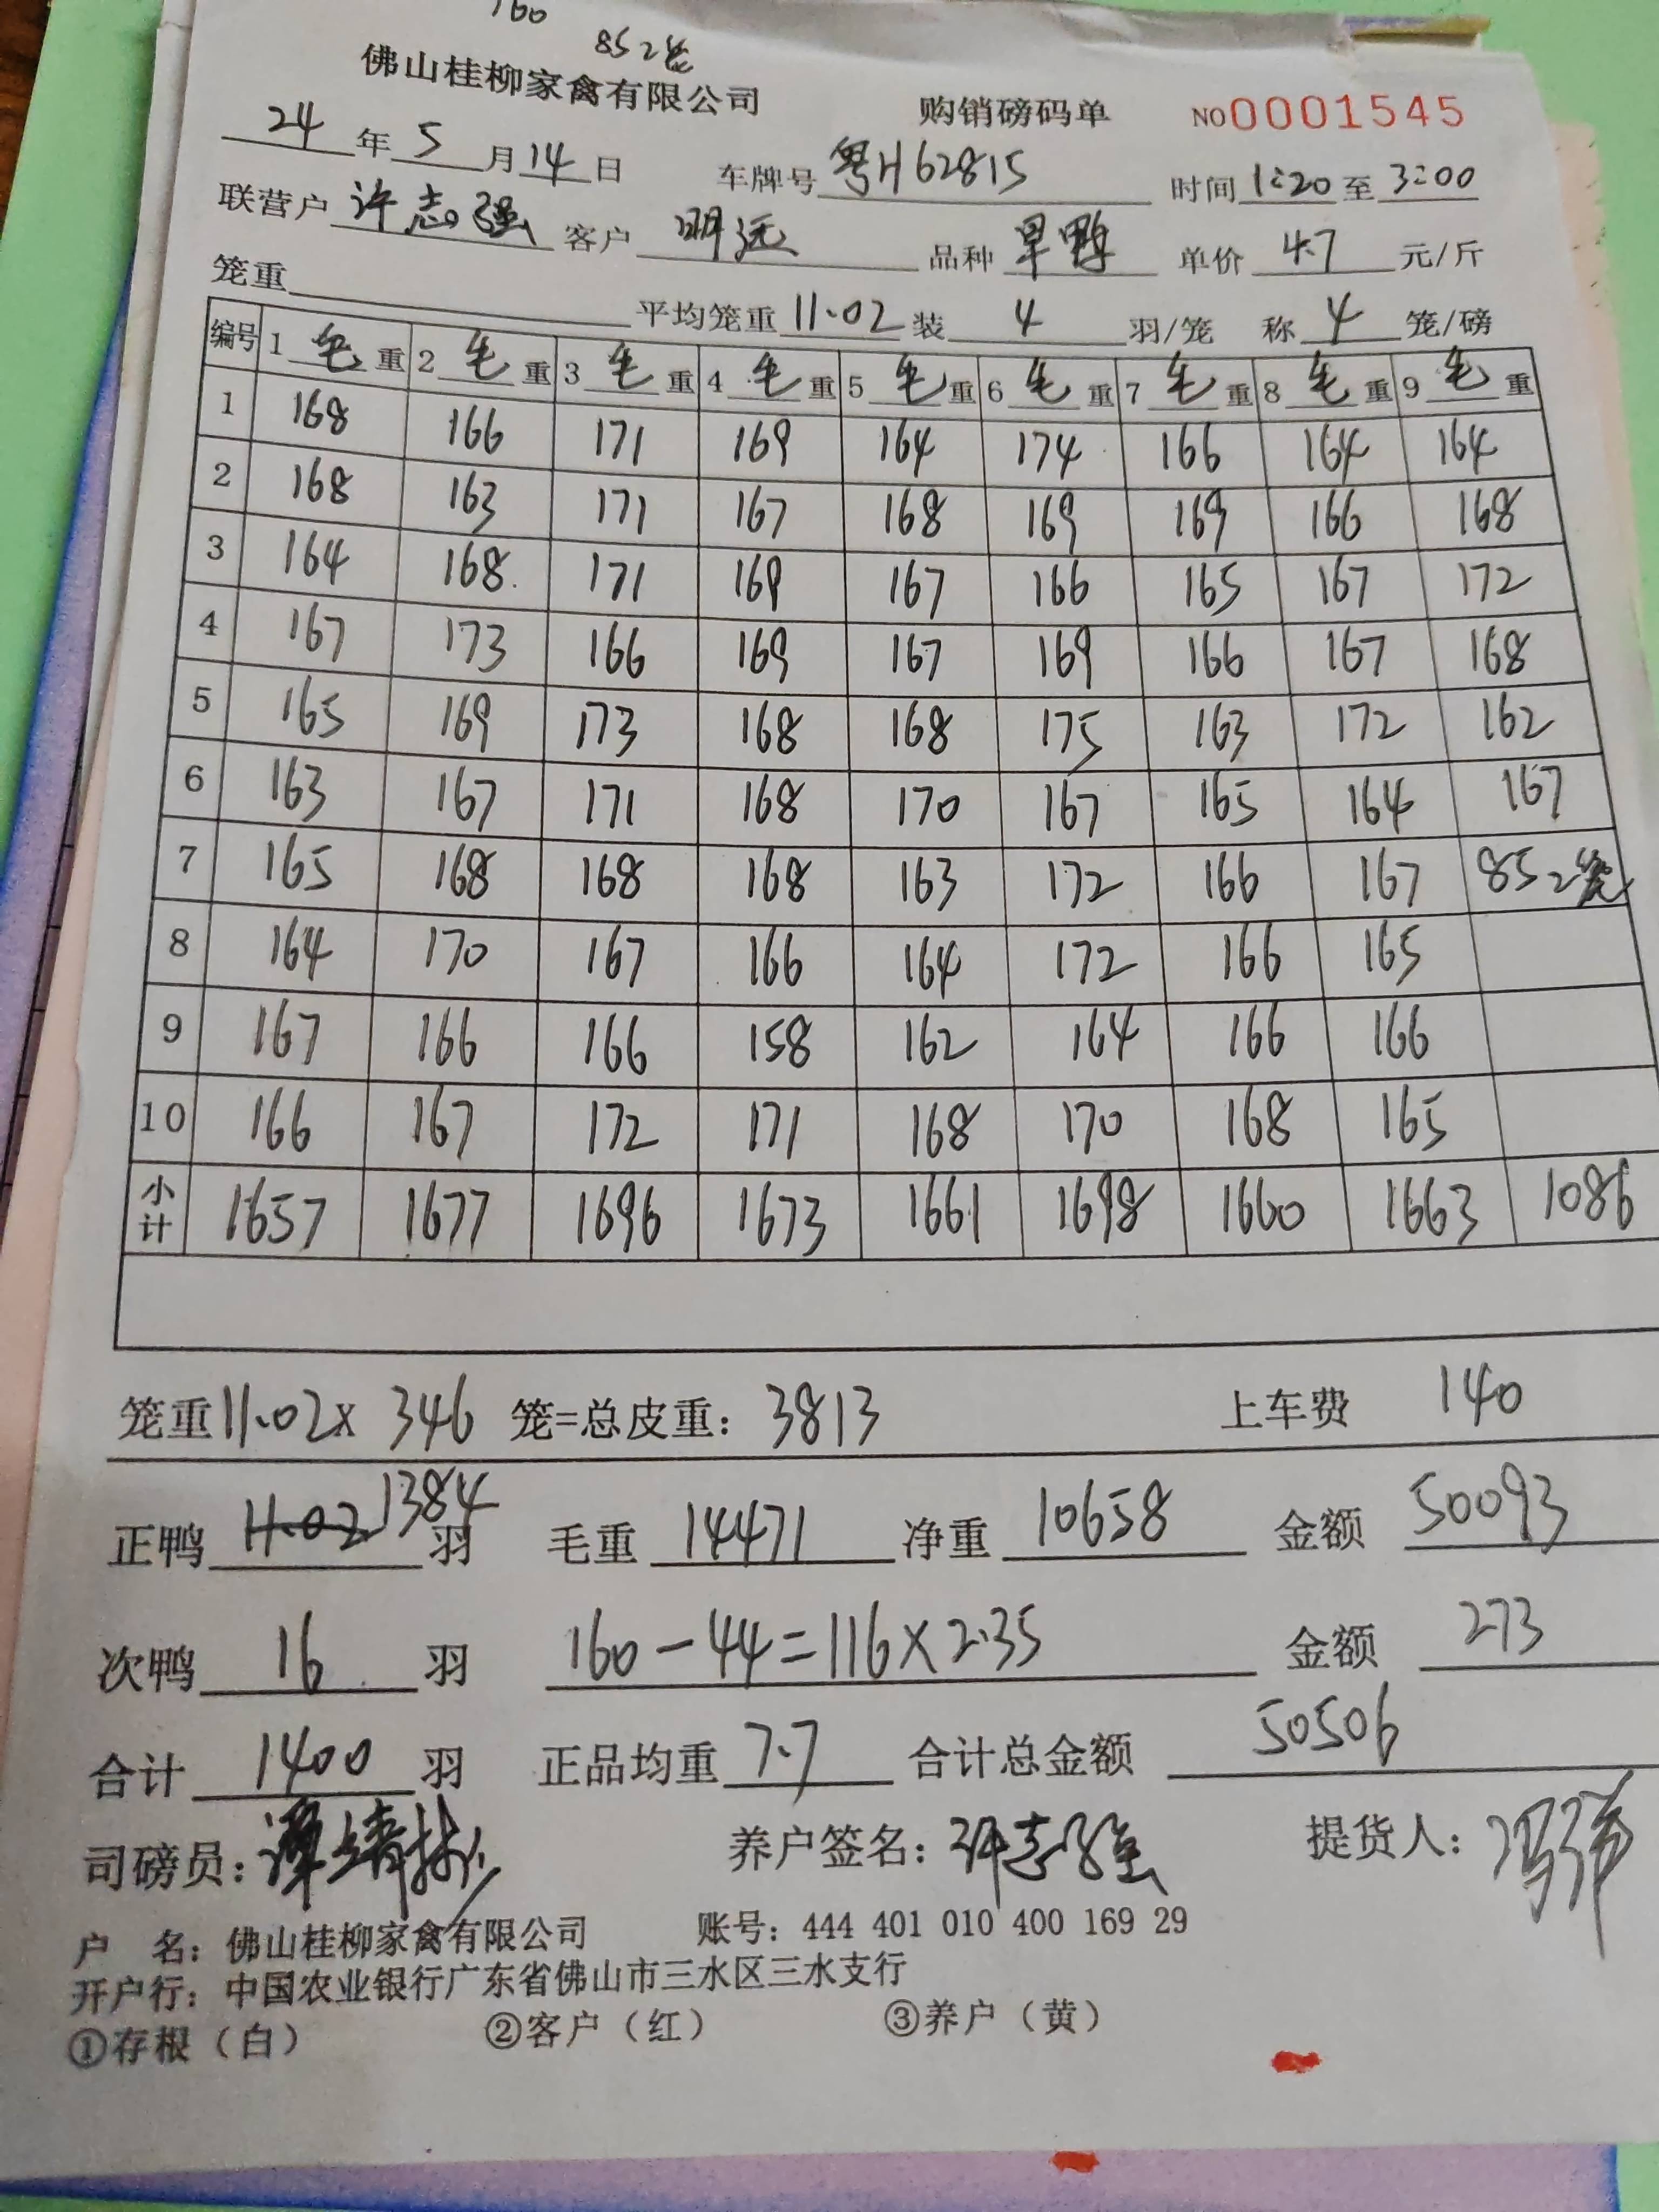 160
85 2笼
佛山桂柳家禽有限公司 购销磅码单 NO0001545
24年5月14日 车牌号 粤H62815 时间 1:20 至 3:00
联营户 许志强 客户 明远 品种 旱鸭 单价 4.7 元/斤
笼重 平均笼重 11.02 装 4 羽/笼 称 4 笼/磅
编号 1毛重 2毛重 3毛重 4毛重 5毛重 6毛重 7毛重 8毛重 9毛重
1 168 166 171 169 164 174 166 164 164
2 168 163 171 167 168 169 169 166 168
3 164 168 171 169 167 166 165 167 172
4 167 173 166 169 167 169 166 167 168
5 165 169 173 168 168 175 163 172 162
6 163 167 171 168 170 167 165 164 167
7 165 168 168 168 163 172 166 167 85 2笼
8 164 170 167 166 164 172 166 165
9 167 166 166 158 162 164 166 166
10 166 167 172 171 168 170 168 165
小计 1657 1677 1696 1673 1661 1698 1660 1663 1086
笼重11.02x 346 笼=总皮重: 3813 上车费 140
正鸭 11.02 1384 羽 毛重 14471 净重 10658 金额 50093
次鸭 16 羽 160-44=116×2.35 金额 273
合计 1400 羽 正品均重 7.7 合计总金额 50506
司磅员: 养户签名: 许志强 提货人:
户 名: 佛山桂柳家禽有限公司 账号: 444 401 010 400 169 29
开户行: 中国农业银行广东省佛山市三水区三水支行
①存根（白） ②客户（红） ③养户（黄）